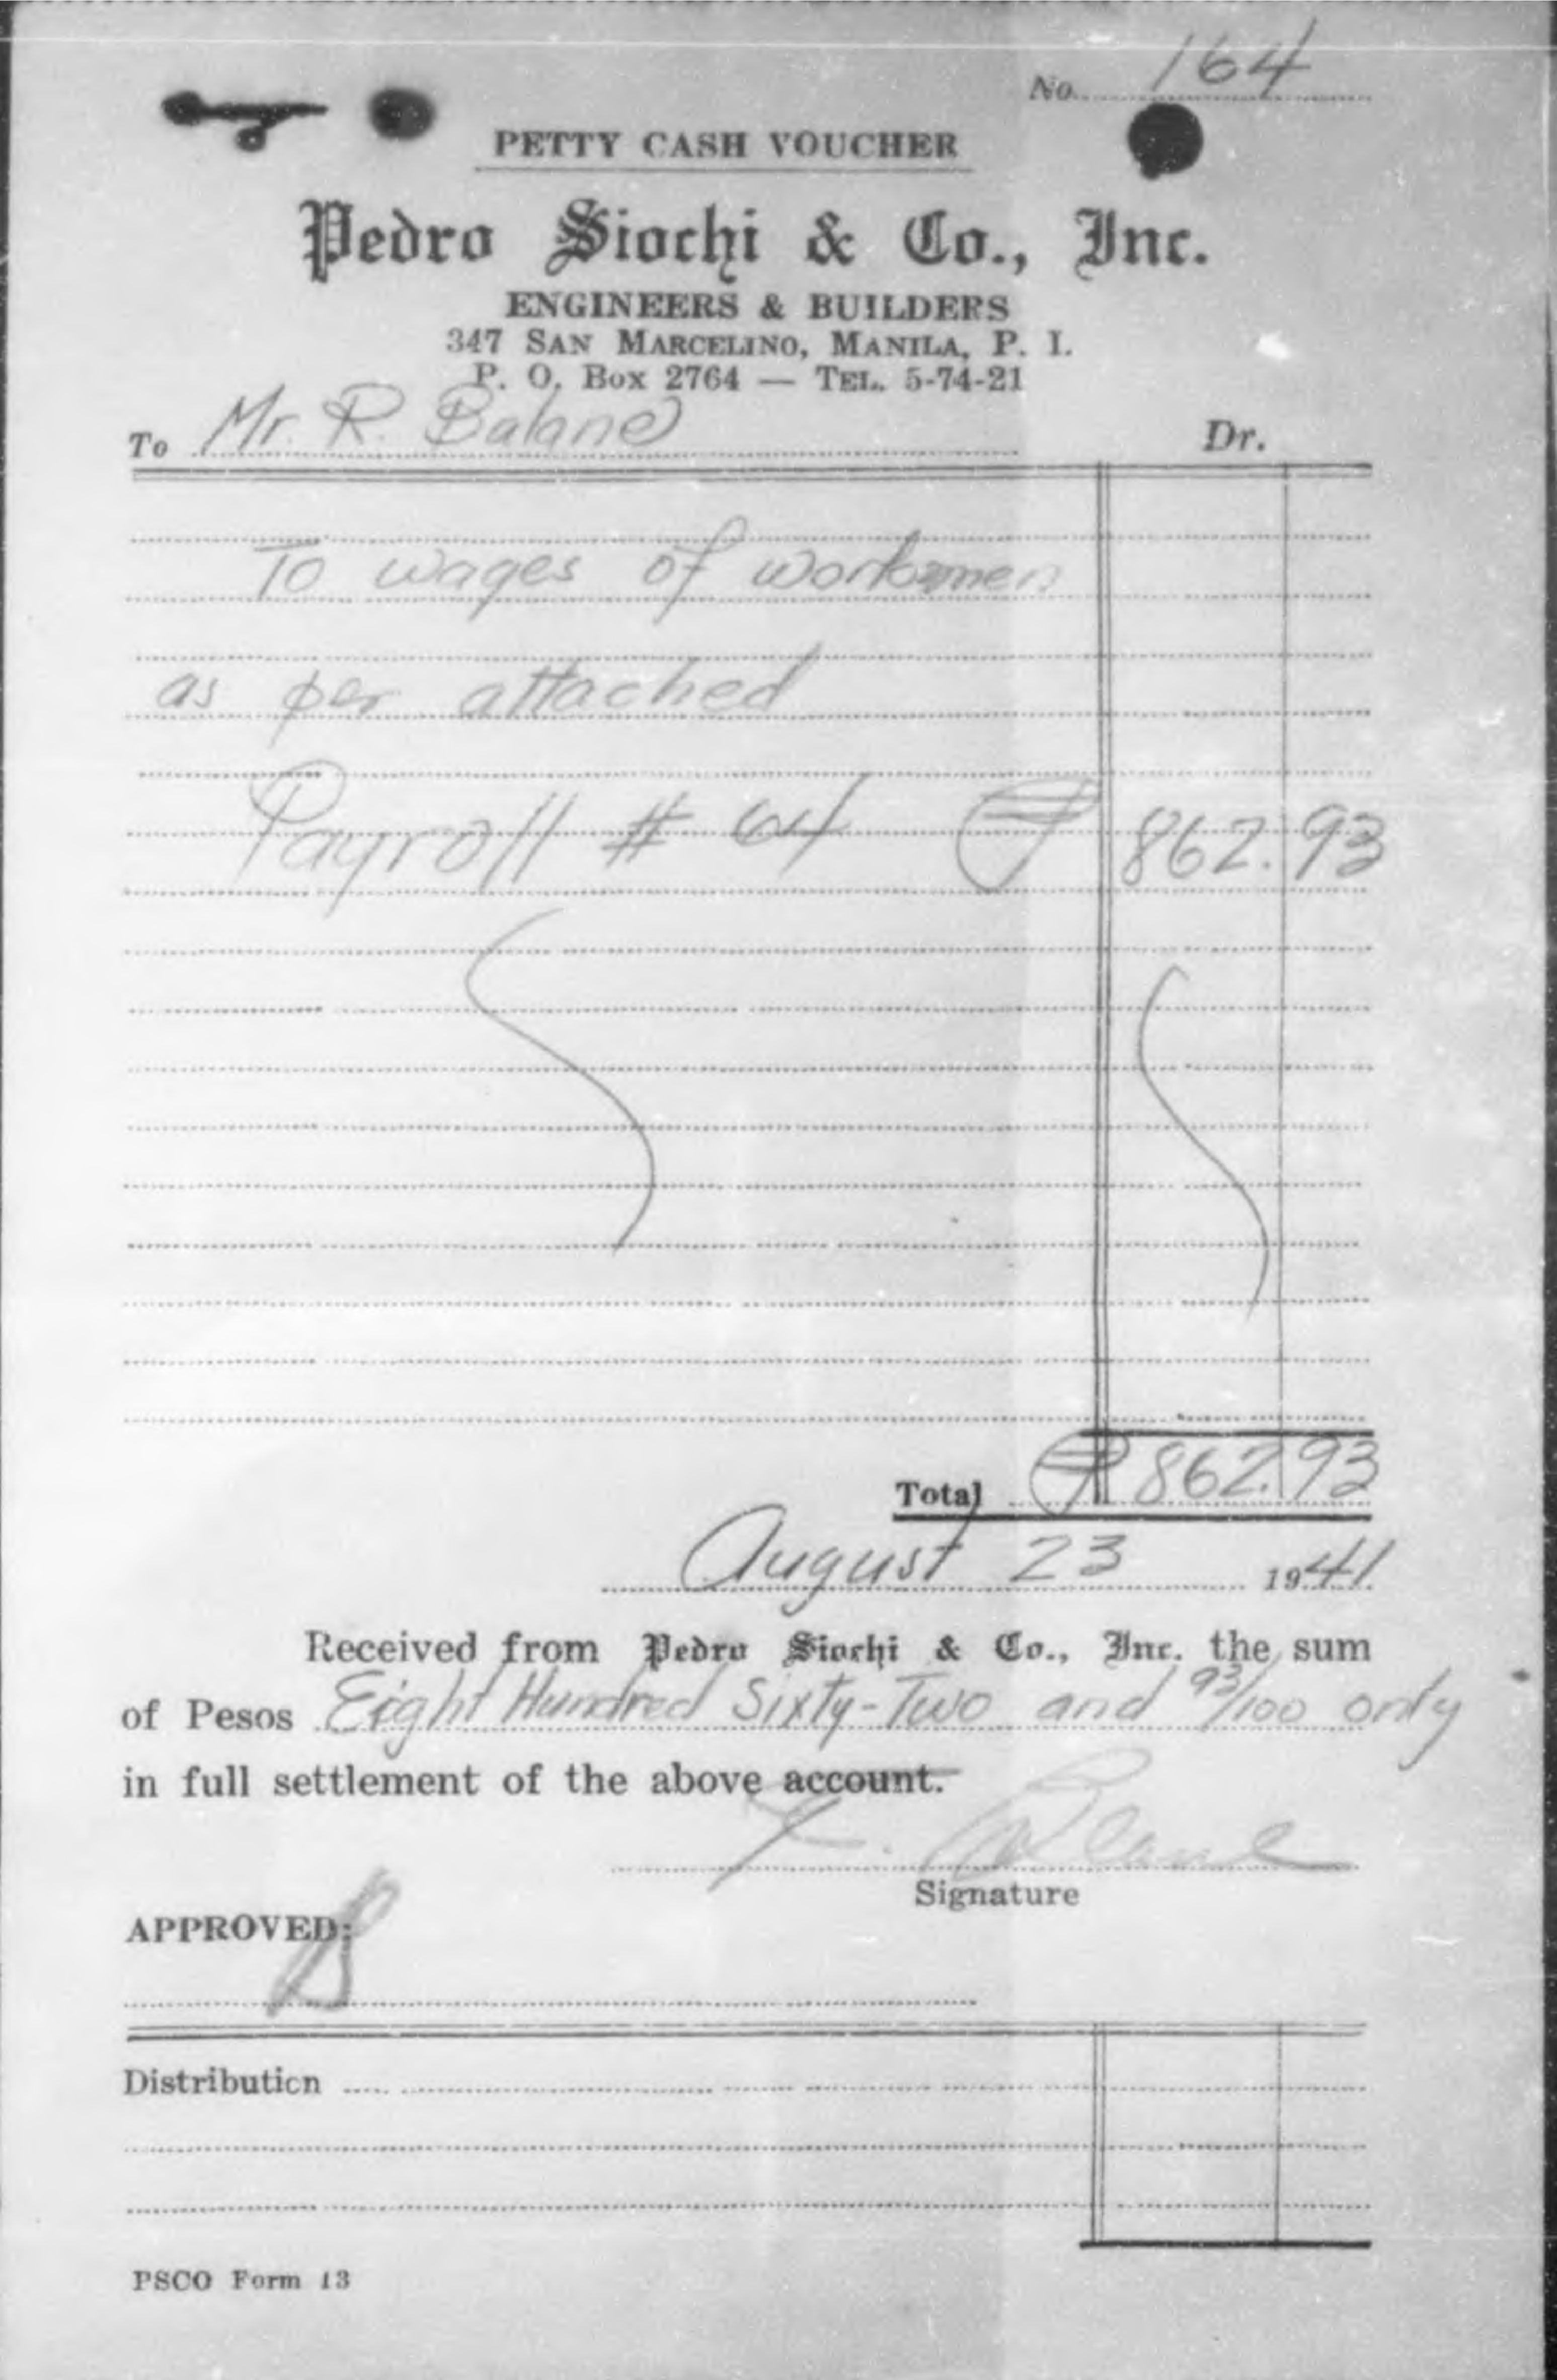 No. 164
PETTY CASH VOUCHER
Pedro Siochi & Co., Inc.
ENGINEERS & BUILDERS
347 SAN MARCELINO, MANILA, P. I.
P. O. Box 2764 — TEL. 5-74-21
To Mr. R. Balane Dr.
To wages of workmen
as per attached
Payroll # 64 ₱ 862.93
Total ₱ 862.93
August 23 1941
Received from Pedro Siochi & Co., Inc. the sum
of Pesos Eight Hundred Sixty-Two and 93/100 only
in full settlement of the above account.
Signature
APPROVED:
Distribution
PSCO Form 13